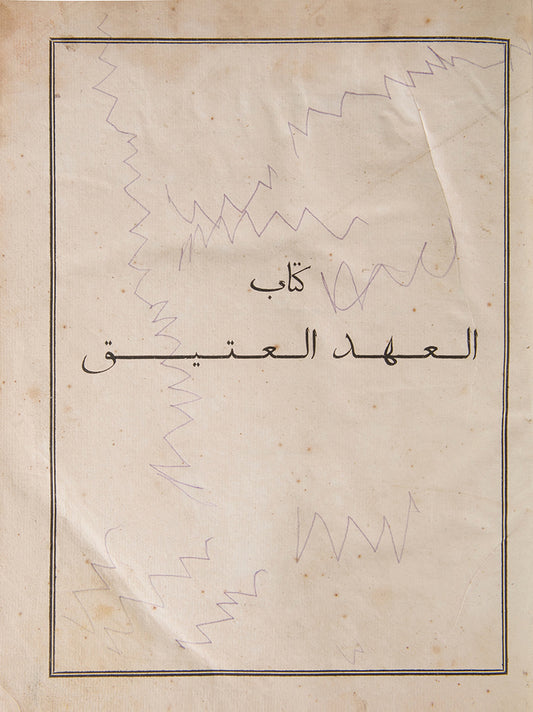 كتاب
العهد العتيق